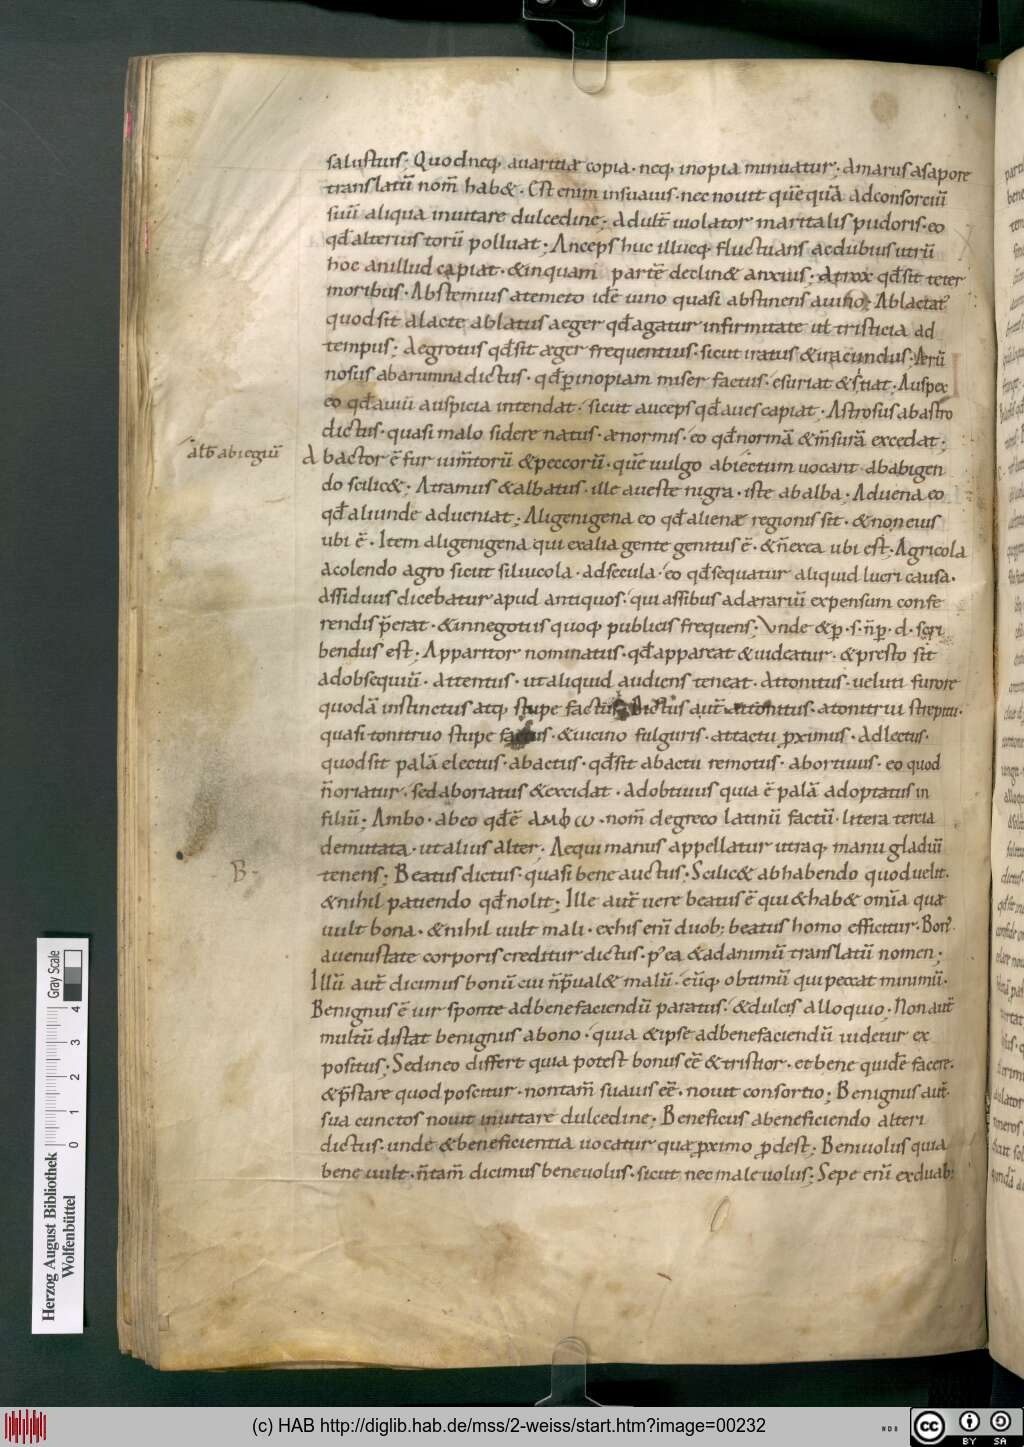 salustius; Quod neq; auaritiæ copia · neq; inopia minuatur; Amarus a sapore
translatū nom̄ hab&. Est enim insuauis · nec nouit quēquā ad consorciū
suū aliqua inuitare dulcedine; Adult̄ uiolator maritalis pudoris · eo
qđ alterius torū polluat; Anceps huc illucq; fluctuans ac dubius utrū
hoc an illud capiat · & in quam partē declin& anxius; Atrox qđ sit teter
moribus · Abstemius a temeto idē uino quasi abstinens a uino; Ablactat᷒
quod sit a lacte ablatus aeger qđ agatur infirmitate ut̄ tristicia ad
tempus; Aegrotus qđ sit æger frequentius · sicut iratus & iracundus; Aerū
nosus ab arumna dictus · qđ ꝑ inopiam miser factus · esuriat & sitiat · Auspex
eo qđ auiū auspicia intendat · sicut auceps qđ aues capiat · Astrosus ab astro
dictus · quasi malo sidere natus · ænormis · eo qđ normā & m̄surā excedat;
Abactor ē fur ium̄torū & peccorū · quē uulgo abiectum uocant · ab abigen
alt̄ abiegiū
do scilic&; Atramus & albatus · ille a ueste nigra · iste ab alba · Aduena eo
qđ aliunde adueniat; Aligenigena eo qđ alienæ regionis sit · & non eius
ubi ē · Item aligenigena qui ex alia gente genitus ē · & n̄ ex ea ubi est · Agricola
a colendo agro sicut siluicola · adsecula · eo qđ sequatur aliquid lucri causa ·
Assiduus dicebatur apud antiquos · qui assibus ad ærariū expensum confe
rendis p̄erat · & in negotiis quoq; publicis frequens; Vnde & ꝑ · s · n̄ ꝑ · d · scri
bendus est; Apparitor nominatus · qđ appareat & uideatur · & presto sit
ad obsequiū · attentus · ut aliquid audiens teneat · Attonitus · ueluti furore
quodā instinctus atq; stupe factus; Dictus aut̄ attonitus · a tonitrui strepitu ·
quasi tonitruo stupe factus · & uicino fulguris · attactu ꝓximus · Adlectus ·
quod sit palā electus · abactus · qđ sit ab actu remotus · abortiuus · eo quod
n̄ oriatur · sed aboriatus & excidat · Adobtiuus quia ē palā adoptatus in
filiū; Ambo · ab eo qđ ē ΑΜΦω · nom̄ de greco latinū factū · litera tercia
demutata · ut alius alter · Aequimanus appellatur utraq; manu gladiū
B ·
tenens; Beatus dictus · quasi bene auctus; Scilic& ab habendo quod uelit ·
& nihil patiendo qđ nolit; Ille aut̄ uere beatus ē qui & hab& omīa quæ
uult bona · & nihil uult mali · ex his enī duob; beatus homo efficitur · Bon᷒
a uenustate corporis creditur dictus · p᷒ ea & ad animū translatū nomen;
Illū aut̄ dicimus bonū cui n̄ p̄ual& malū · eūq; obtimū qui peccat minimū ·
Benignus ē uir sponte ad benefaciendū paratus · & dulcis alloquio · Non aut̄
multū distat benignus a bono · quia & ipse ad benefaciendū uidetur ex
positus; Sed in eo differt quia potest bonus eē & tristior · et bene quidē facere ·
& p̄stare quod poscitur · non tam̄ suauis eē · nouit consortio; Benignus aut̄
sua cunctos nouit inuitare dulcedine; Beneficus a beneficiendo alteri
dictus · unde & beneficientia uocatur quæ ꝓximo ꝓdest; Beniuolus quia
bene uult · n̄ tam̄ dicimus beneuolus · sicut nec maleuolus; Sepe enī ex duab;
Herzog August Bibliothek
Wolfenbüttel
0 1 2 3 4
Gray Scale
(c) HAB http://diglib.hab.de/mss/2-weiss/start.htm?image=00232
WDB
cc BY SA